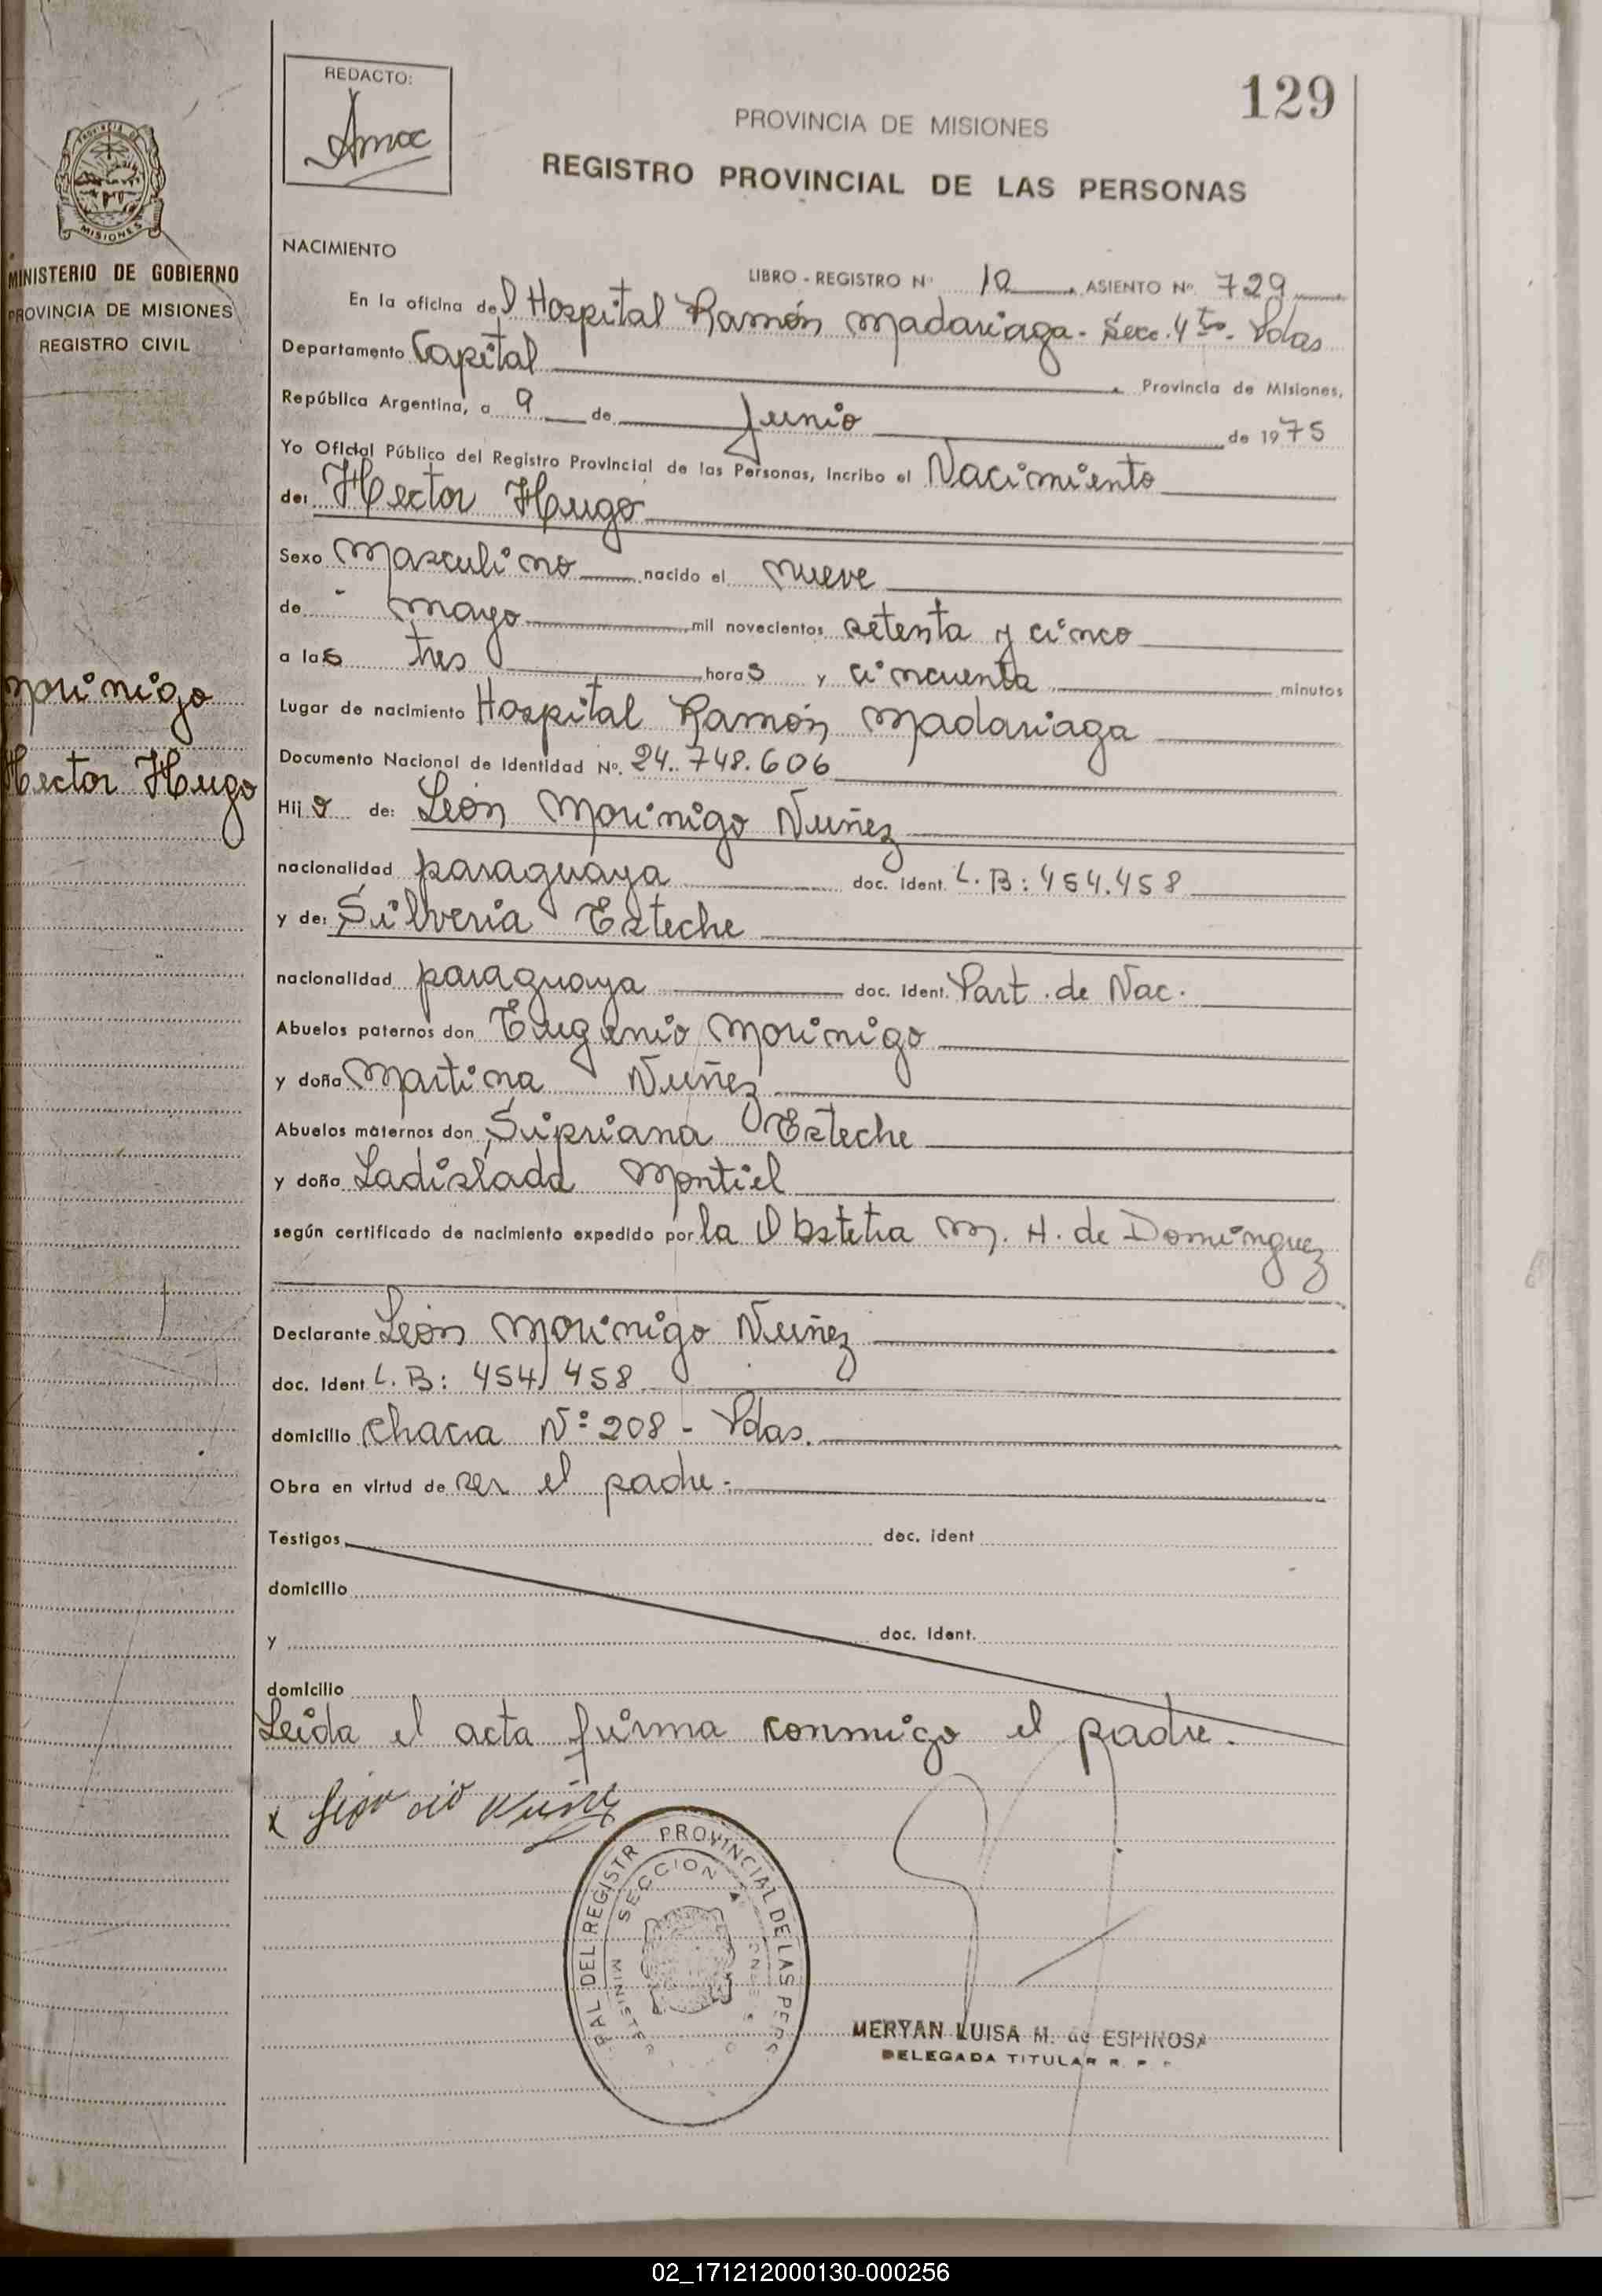 129
REDACTO:
PROVINCIA DE MISIONES
REGISTRO PROVINCIAL DE LAS PERSONAS
MISIONES
MINISTERIO DE GOBIERNO
PROVINCIA DE MISIONES
REGISTRO CIVIL
Morinigo
Hector Hugo
NACIMIENTO
LIBRO - REGISTRO Nº 10 ASIENTO Nº 729
En la oficina del Hospital Ramón Madariaga - Secc. 4ta. Pdas
Departamento Capital Provincia de Misiones,
República Argentina, a 9 de Junio de 1975
Yo Oficial Público del Registro Provincial de las Personas, Incribo el Nacimiento
de: Hector Hugo
Sexo Masculino nacido el nueve
de mayo mil novecientos setenta y cinco
a las tres horas y cincuenta minutos
Lugar de nacimiento Hospital Ramón Madariaga
Documento Nacional de Identidad Nº. 24.748.606
Hijo de: León Morinigo Nuñez
nacionalidad paraguaya doc. Ident. L.B: 454.458
y de: Silveria Esteche
nacionalidad paraguaya doc. Ident. Part. de Nac.
Abuelos paternos don Eugenio Morinigo
y doña Martina Nuñez
Abuelos maternos don Sipriana Esteche
y doña Ladislada Montiel
según certificado de nacimiento expedido por la Obstetra M. H. de Dominguez
Declarante León Morinigo Nuñez
doc. Ident L. B: 454.458
domicilio chacra Nº 208 - Pdas.
Obra en virtud de ser el padre.
Testigos doc. ident
domicilio
y doc. Ident.
domicilio
Leida el acta firma conmigo el padre.
PAL DEL REGISTR PROVINCIAL DE LAS PERS
SECCION 4
MERYAN LUISA M. de ESPINOSA
DELEGADA TITULAR R. P. P
02_171212000130-000256